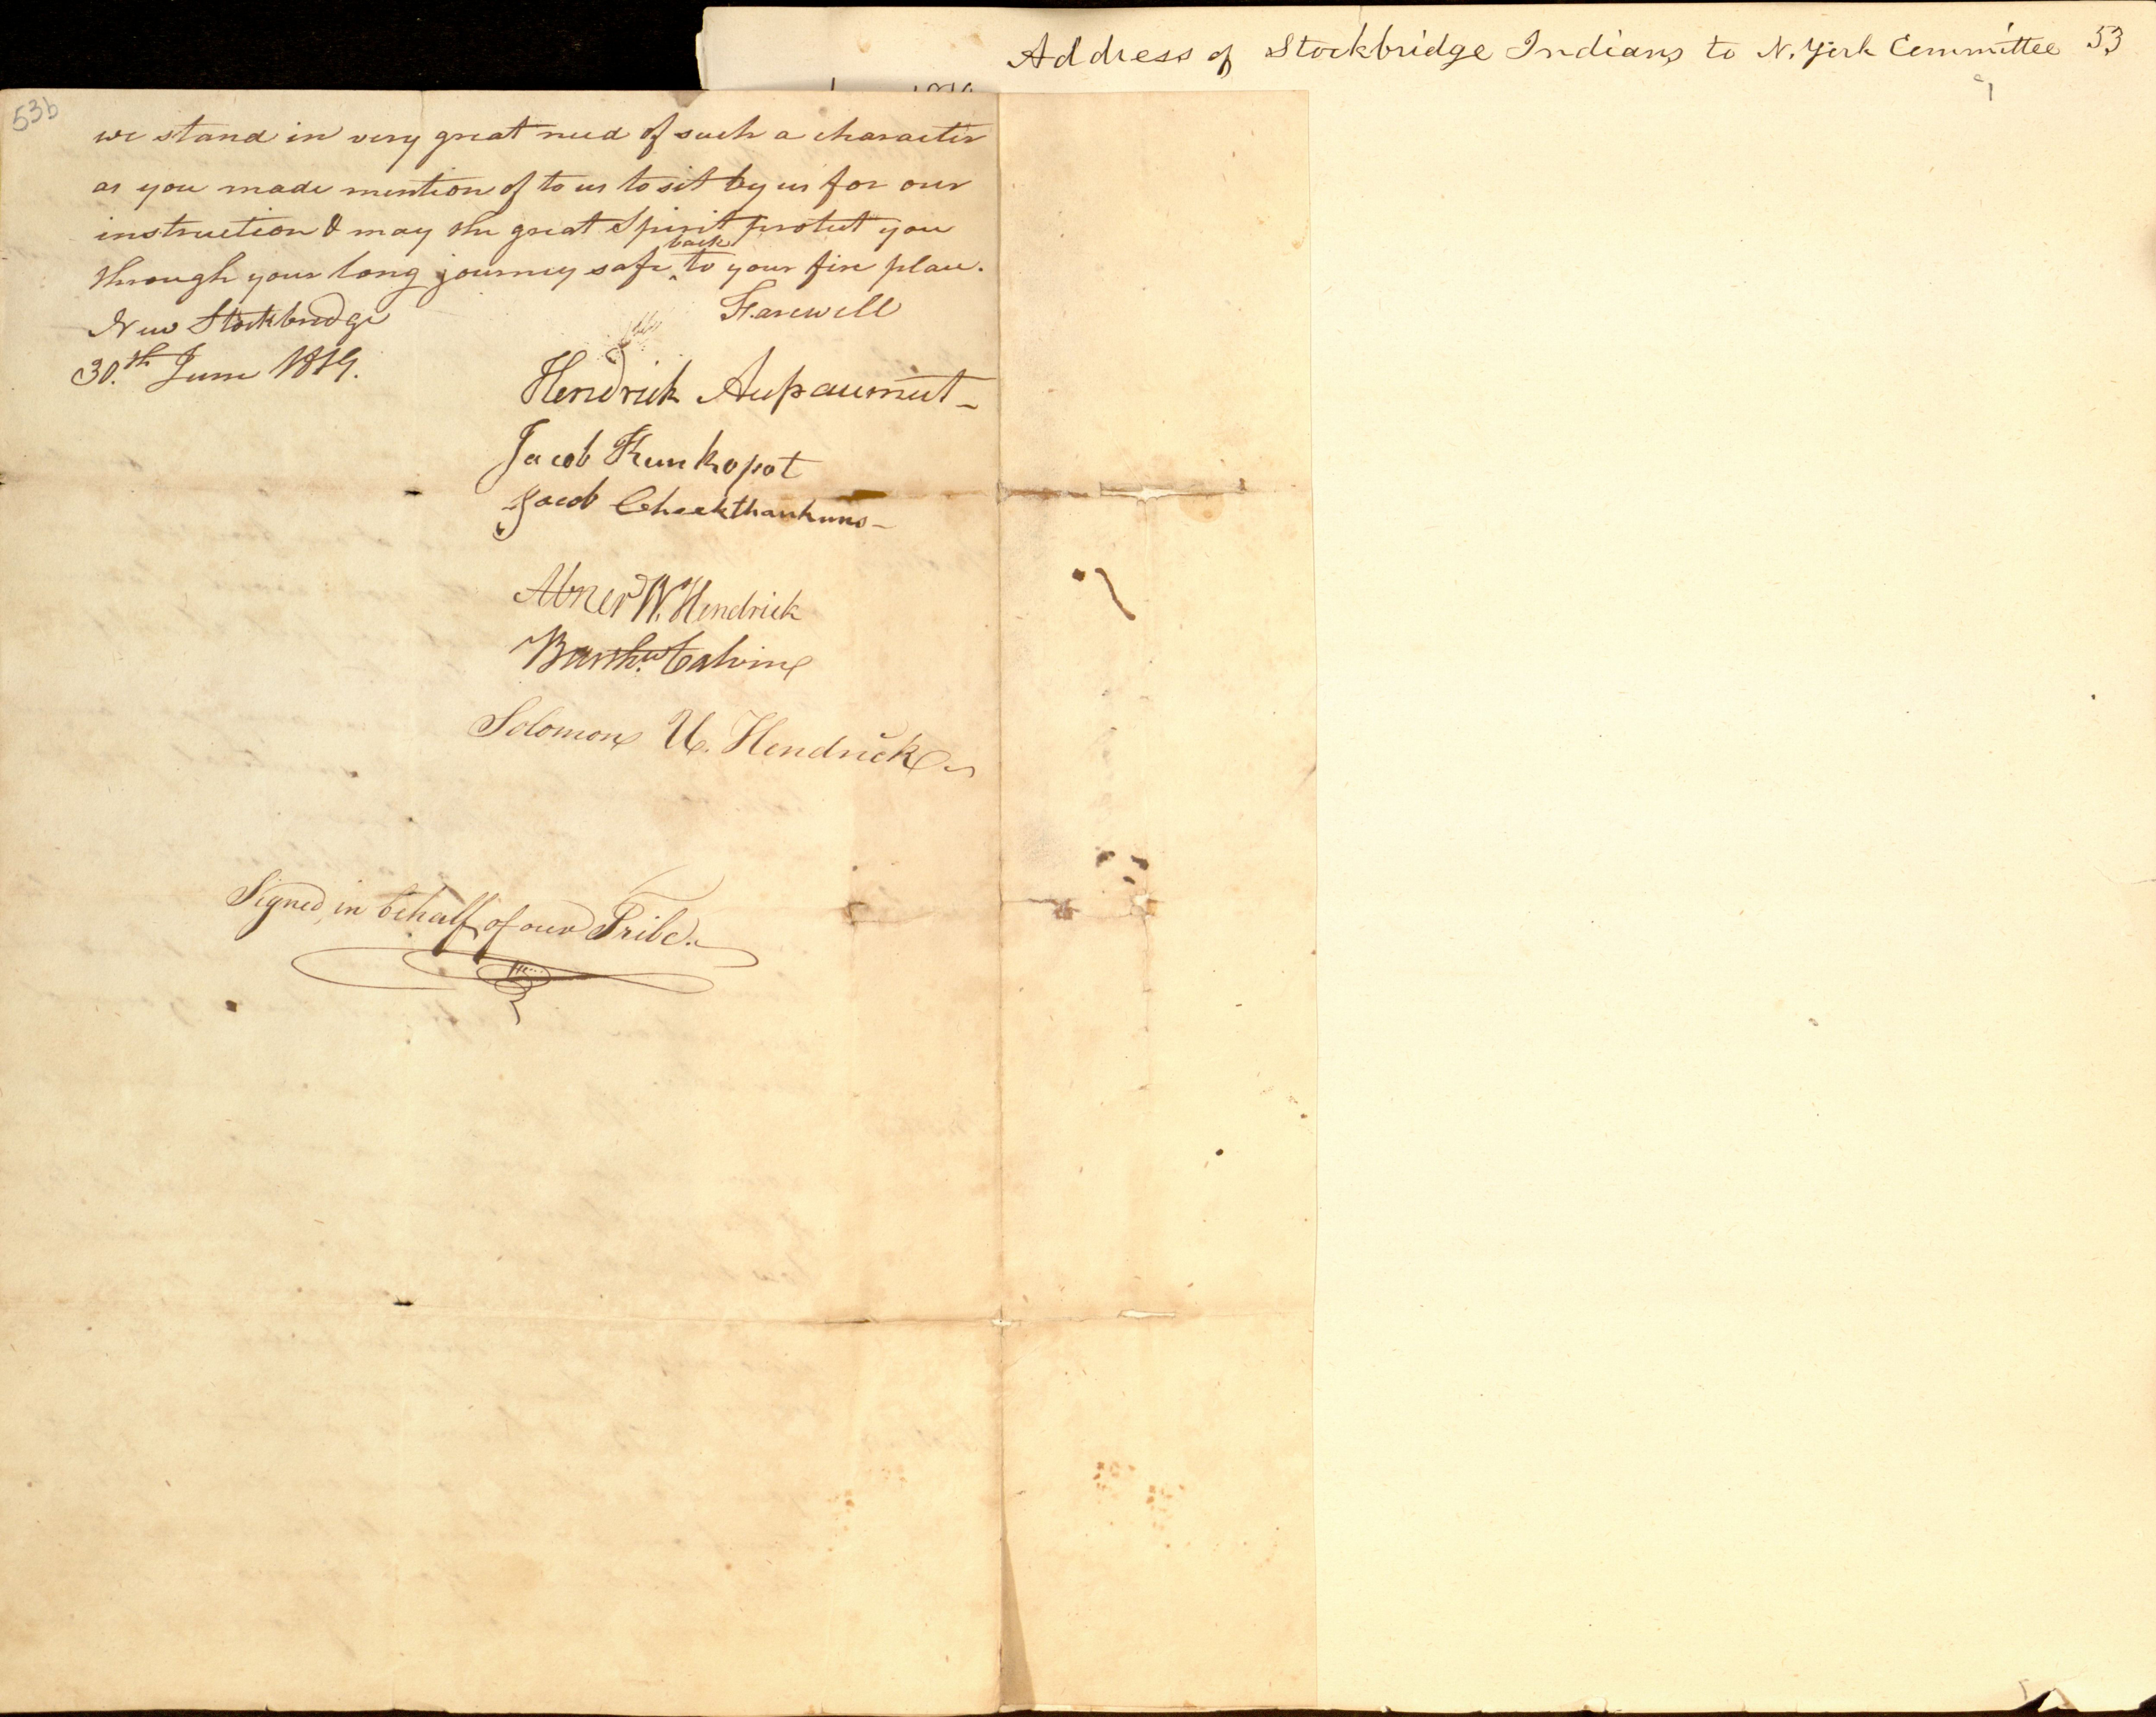 Address of Stockbridge Indians to N. York Committee 53
53b
we stand in very great need of such a character
as you made mention of to us to sit by us for our
instruction & may the great Spirit protect you
through your long journey safe back to your fire place.
Farewell
New Stockbridge
30.th June 1819.
Hendrick Aupaumut
Jacob Kunkopot
Jacob Cheekthaukuns
Abner W. Hendrick
Barthw. Calvin
Solomon U. Hendrick
Signed, in behalf of our Tribe.